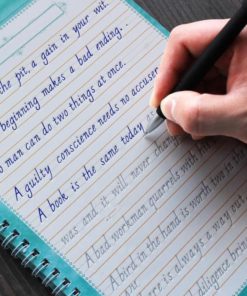 the pit, a gain in your wit.
beginning makes a bad ending...
man can do two things at once.
A guilty conscience needs no accuser
A book is the same today as
was and it will never chang
A bad workman quarrels with his
A bird in the hand is worth two in
ere is always a way out
diligence brin